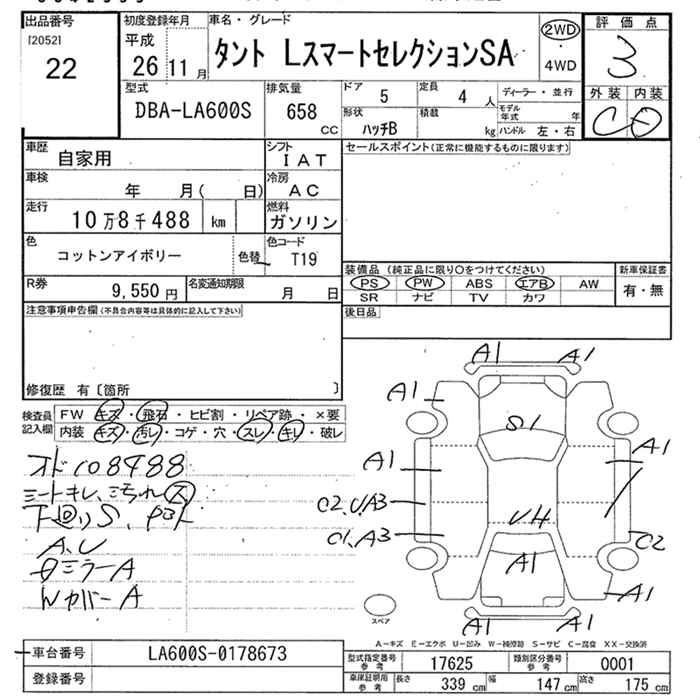 出品番号
[2052]
22
初度登録年月
平成
26 11 月
車名・グレード
タント LスマートセレクションSA
2WD
4WD
評価点
3
外装 内装
C D
型式
DBA-LA600S
排気量
658 CC
ドア 5
定員 4 人
形状 ハッチB
積載 kg
ディーラー・並行
モデル年式 年
ハンドル 左・右
車歴 自家用
シフト IAT
車検 年 月( 日)
冷房 AC
走行 10万8千488 km
燃料 ガソリン
色 コットンアイボリー 色替
色コード T19
R券 9,550 円
名変通知期限 月 日
セールスポイント(正常に機能するものに限ります)
装備品 (純正品に限り〇をつけてください)
PS PW ABS エアB AW
SR ナビ TV カワ
新車保証書
有・無
後日品
注意事項申告欄(不具合内容等は具体的に記入して下さい)
修復歴 有〔箇所 〕
検査員記入欄
FW キズ・飛石・ヒビ割・リペア跡・×要
内装 キズ・汚レ・コゲ・穴・スレ・キレ・破レ
オドt08488
シートキレ、汚れ ス
下廻りS、
A、U
ミラーA
WカバーA
A1 A1
A1
S1
A1 A1
C2、U、A3
C1、A3
UH
C2
A1
A1
A1 A1
スペア
A－キズ E－エクボ U－凹み W－補修跡 S－サビ C－腐食 XX－交換済
車台番号 LA600S-0178673
登録番号
型式指定番号 参考 17625
類別区分番号 参考 0001
車庫証明用 参考 長さ 339 cm 幅 147 cm 高さ 175 cm